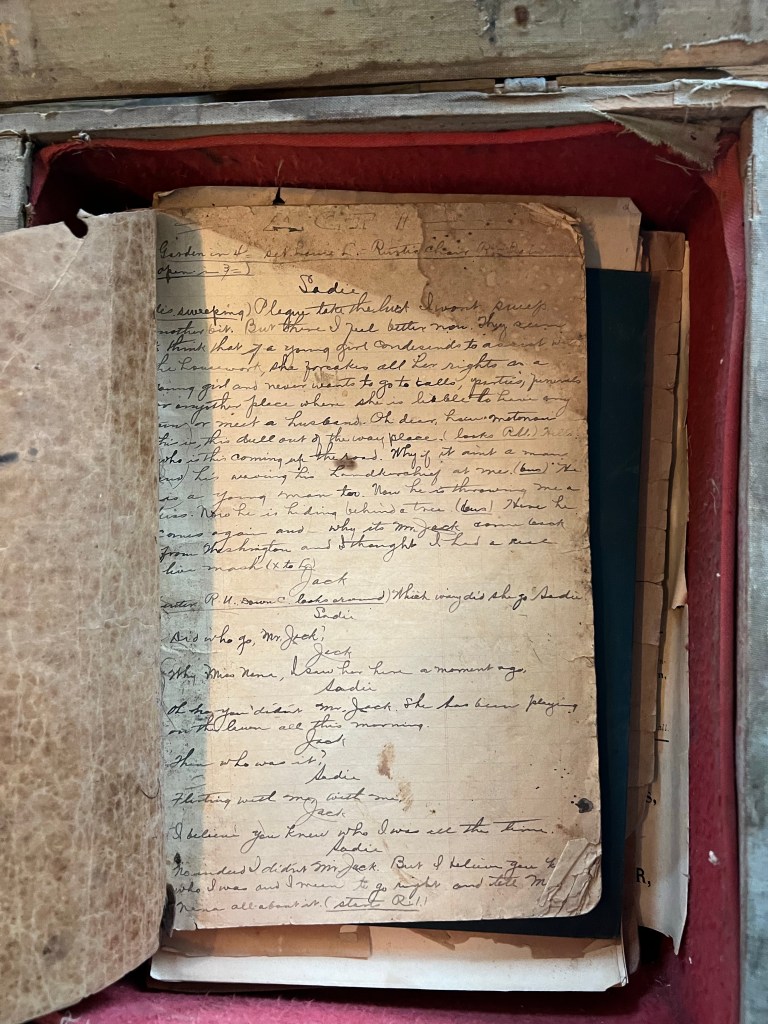 ACT II
Garden in 4 = Set House L. Rustic Chair
open in 3 =
Sadie
sweeping) Plague take the luck I won't sweep
another bit. But there I feel better now. They seem
think that if a young girl condesends to assist with
he housework, she forsakes all her rights as a
oung girl and never wants to go to balls, parties, funerals
or anyther place where she is liable to have any
or meet a husband. Oh dear, how motonous
his is, this dull out of the way place. (looks R.U.)
who is this coming up the road. Why if it aint a man
and his waving his handkerchief at me. (bus) He
is a young man too. Now he is throwing me a
kiss. Now he is hiding behind a tree (bus) Here he
comes again and why its Mr. Jack come back
from Washington and I thought I had a real
live mash (x to L)
Jack
enters R.U. Down C. looks around) Which way did she go Sadie
Sadie
Did who go, Mr. Jack?
Jack
Why Miss Nena, I saw her here a moment ago.
Sadie
Oh no you didnt Mr. Jack. She has been playing
on the lawn all this morning.
Jack
Then who was it?
Sadie
Flirting with me, with me.
Jack
I believe you knew who I was all the time.
Sadie
No indeed I didnt Mr. Jack. But I believe you
who I was and I mean to go right and tell
Nena all about it. (starts R.1.)
R,